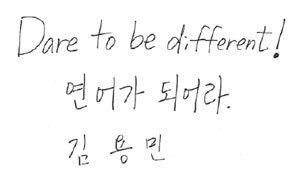 Dare to be different!
연어가 되어라.
김용민